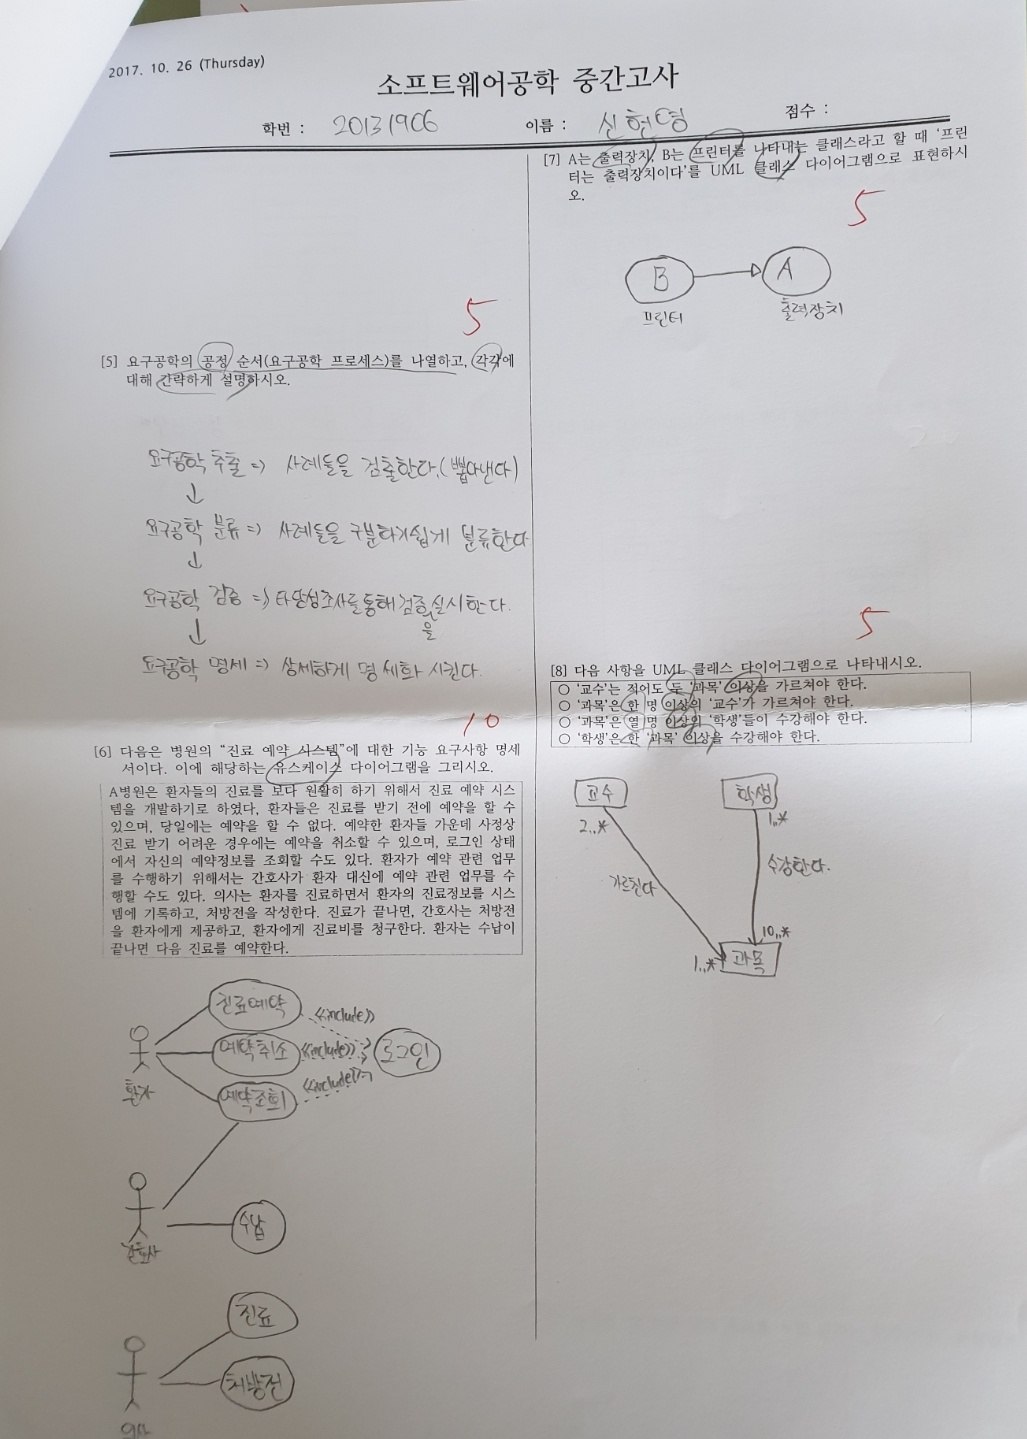 2017. 10. 26 (Thursday)
소프트웨어공학 중간고사
학번 : 20131906 이름 : 신현영 점수 :
5
[5] 요구공학의 공정 순서(요구공학 프로세스)를 나열하고, 각각에
대해 간략하게 설명하시오.
요구공학 추출 => 사례들을 검출한다.(뽑아낸다)
↓
요구공학 분류 => 사례들을 구분하기쉽게 분류한다
↓
요구공학 검증 => 타당성조사를 통해 검증을 실시한다.
↓
요구공학 명세 => 상세하게 명세화 시킨다.
10
[6] 다음은 병원의 "진료 예약 시스템"에 대한 기능 요구사항 명세
서이다. 이에 해당하는 유스케이스 다이어그램을 그리시오.
A병원은 환자들의 진료를 보다 원활히 하기 위해서 진료 예약 시스
템을 개발하기로 하였다. 환자들은 진료를 받기 전에 예약을 할 수
있으며, 당일에는 예약을 할 수 없다. 예약한 환자들 가운데 사정상
진료 받기 어려운 경우에는 예약을 취소할 수 있으며, 로그인 상태
에서 자신의 예약정보를 조회할 수도 있다. 환자가 예약 관련 업무
를 수행하기 위해서는 간호사가 환자 대신에 예약 관련 업무를 수
행할 수도 있다. 의사는 환자를 진료하면서 환자의 진료정보를 시스
템에 기록하고, 처방전을 작성한다. 진료가 끝나면, 간호사는 처방전
을 환자에게 제공하고, 환자에게 진료비를 청구한다. 환자는 수납이
끝나면 다음 진료를 예약한다.
진료예약 <<include>>
예약취소 <<include>> 로그인
환자 예약조회 <<include>>
수납
간호사
진료
처방전
의사
[7] A는 출력장치, B는 프린터를 나타내는 클래스라고 할 때 '프린
터는 출력장치이다'를 UML 클래스 다이어그램으로 표현하시
오.
5
B A
프린터 출력장치
5
[8] 다음 사항을 UML 클래스 다이어그램으로 나타내시오.
○ '교수'는 적어도 두 '과목' 이상을 가르쳐야 한다.
○ '과목'은 한 명 이상의 '교수'가 가르쳐야 한다.
○ '과목'은 열 명 이상의 '학생'들이 수강해야 한다.
○ '학생'은 한 '과목' 이상을 수강해야 한다.
교수 학생
2..* 1..*
가르친다 수강한다.
10..*
1..* 과목